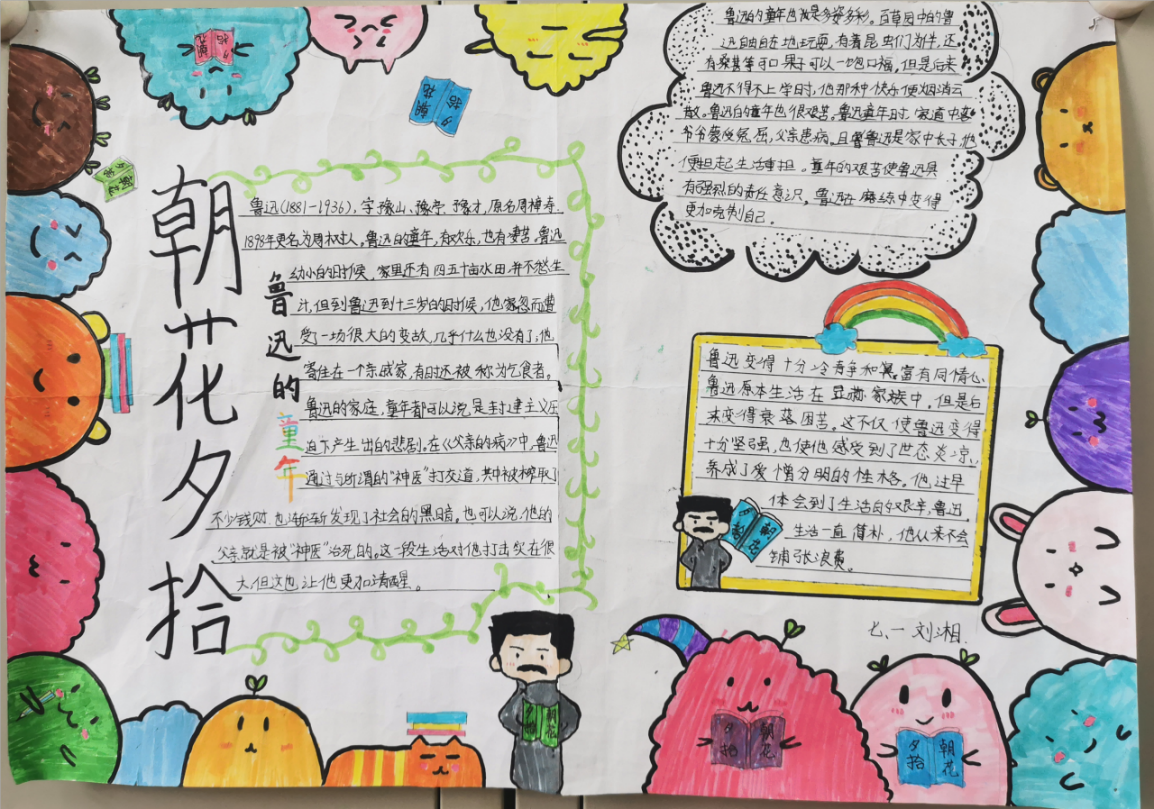 朝花夕拾
鲁迅的童年
鲁迅(1881-1936),字豫山、豫亭、豫才,原名周樟寿.
1898年更名为周树人。鲁迅的童年,有欢乐,也有凄苦。鲁迅
幼小的时候,家里还有四五十亩水田,并不愁生
计,但到鲁迅到十三岁的时候,他家忽而遭
受一场很大的变故,几乎什么也没有了,他
寄住在一个亲戚家,有时还被称为乞食者。
鲁迅的家庭、童年都可以说是封建主义压
迫下产生出的悲剧,在《父亲的病》中,鲁迅
通过与所谓的“神医”打交道,其中被榨取了
不少钱财,也渐渐发现了社会的黑暗。也可以说,他的
父亲就是被“神医”治死的。这一段生活对他打击实在很
大,但这也让他更加清醒。
鲁迅的童年也是多姿多彩。百草园中的鲁
迅自由自在地玩耍,有着昆虫们为伴,还
有桑葚等可口果子可以一饱口福,但是后来
鲁迅不得不上学时,他那种快乐便烟消云
散。鲁迅的童年也很艰苦。鲁迅童年时,家道中衰
爷爷蒙受冤屈,父亲患病。且鲁迅是家中长子,他
便担起生活重担。童年的艰苦使鲁迅具
有强烈的责任意识。鲁迅在磨练中变得
更加克制自己。
鲁迅变得十分冷静和富有同情心
鲁迅原本生活在显赫家族中,但是后
来变得衰落困苦。这不仅使鲁迅变得
十分坚强,也使他感受到了世态炎凉,
养成了爱憎分明的性格。他过早
体会到了生活的艰辛,鲁迅
生活一直简朴,他从来不会
铺张浪费。
七、一 刘湘.
朝花
夕拾
朝花
夕拾
朝花
夕拾
朝花
夕拾
朝花
夕拾